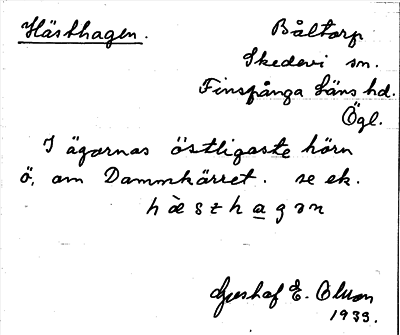 Hästhagen.
Båltorp
Skedevi sn.
Finspånga läns hd.
Ögl.
I ägornas östligaste hörn
ö. om Dammkärret. se ek.
hὰsthagən
Gustaf E. Olson
1933.